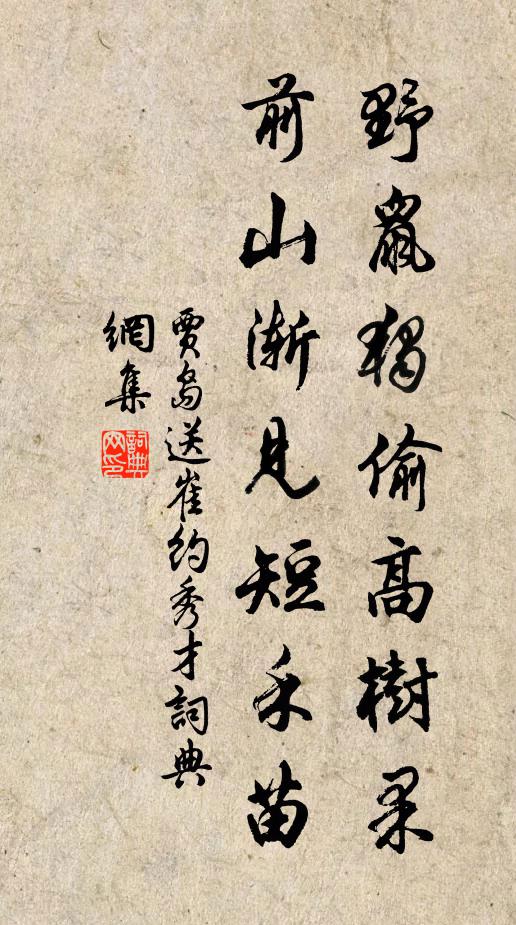 野鼠獨偷高樹果
前山漸見短禾苗
賈島送崔約秀才詞典
網集
詞典網印